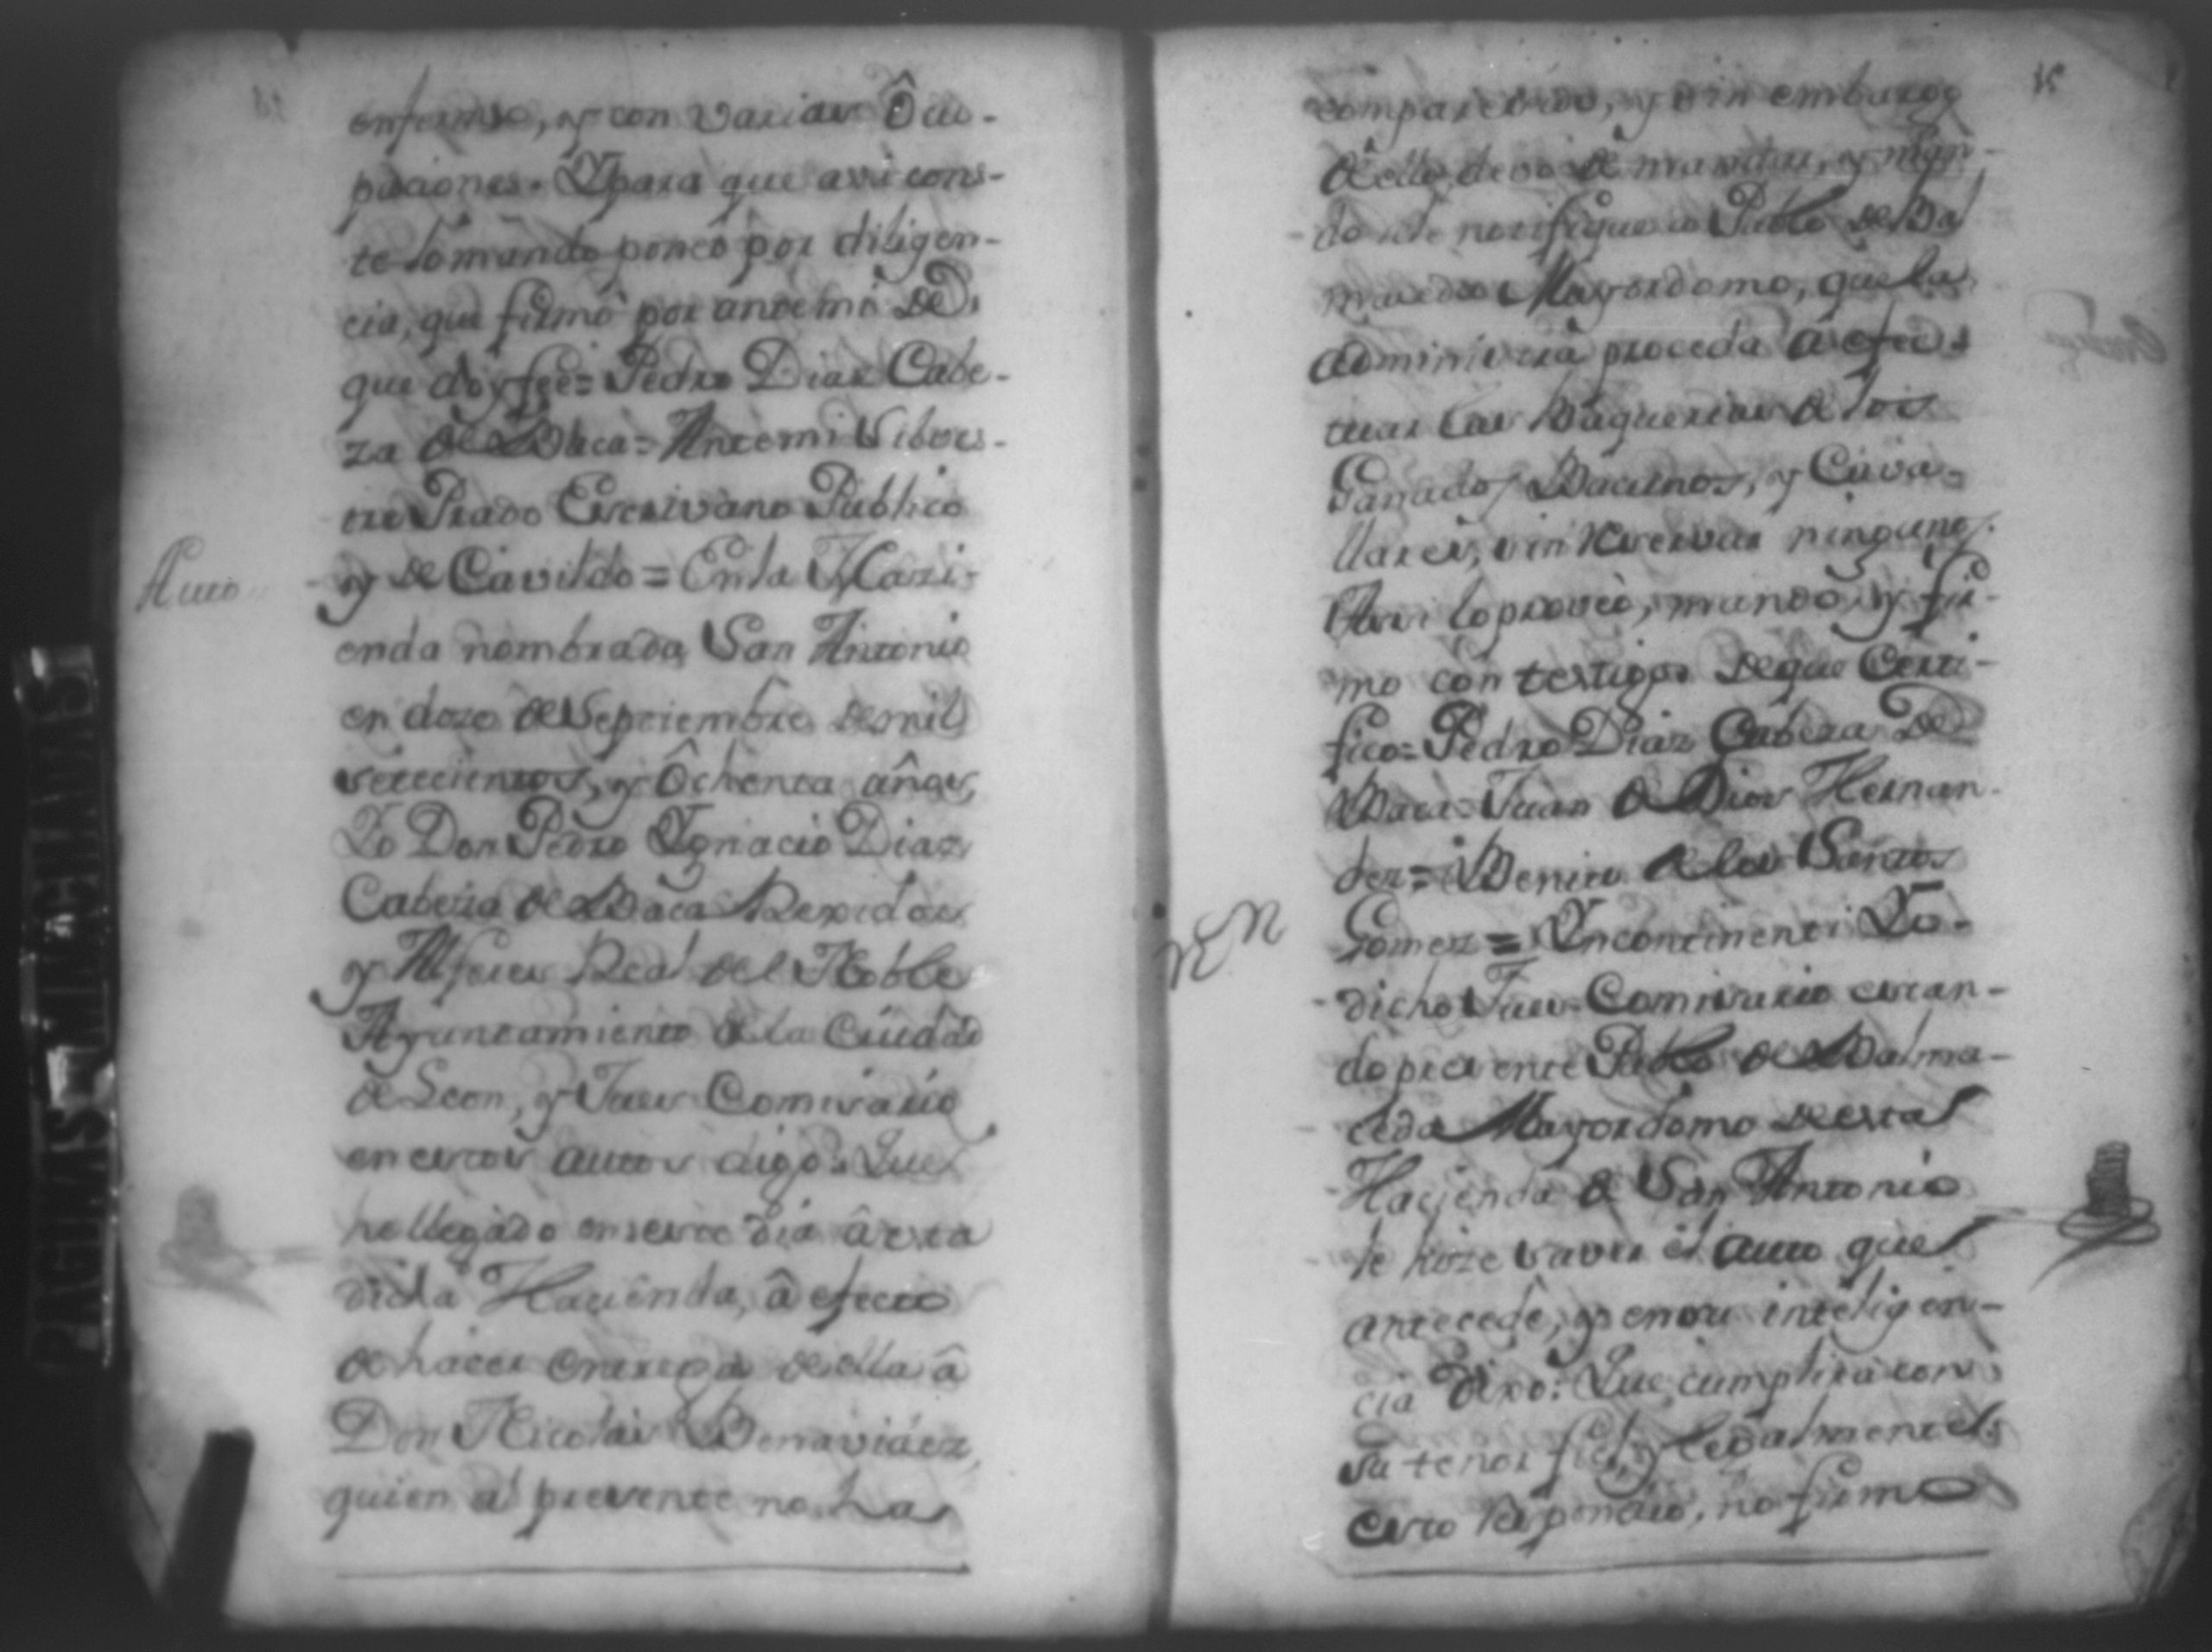 enfermo, y con varias Ôcu-
paciones. Ypara que asi cons-
te lo mandô ponêr por diligen-
cia, que firmô por antemi de
que doy feê= Pedro Diaz Cabe-
za de Baca= Antemi Silves-
tre Prado Escrivano Publico
y de Cavildo = Enla Hazi-
enda nombrada San Antonio
en doze de Septiembre de mil
setecientos, y Ôchenta años,
Yo Don Pedro Ygnacio Diaz
Cabeza de Baca Rexidor
y Alferes Real del Noble
Ayuntamiento de la Ciudad
de Leon, y Juez Comisario
en estos autos digo: Que
he llegado en este dia â esta
dicha Hacienda, â efecto
de hacer entrega de ella â
Don Nicolas Benavidez,
quien al presente no ha
Auto
comparecido, y sin embargo
de ello devo de mandar, y man-
do se le notifique a Pablo de Bal
maceda Mayordomo, que la
administra proceda a efec-
tuar las Baquerias de los
Ganados Bacunos, y Cava-
llares, sin reservar ningunos.
Asi lo proveô, mandô, y fir-
mo con testigos de que Certi-
fico= Pedro Diaz Cabeza de
Baca= Juan de Dios Hernan-
dez= Benito de los Santos
Gomez = Yncontinenti Yo
dicho Juez Comisario estan-
do presente Pablo de Balma-
ceda Mayordomo de esta
Hacienda de San Antonio
le hize saver el auto que
antecede, y en su inteligen-
cia dixo: Que cumplira con
su tenor fiel, y legalmente
esto respondio, no firmo